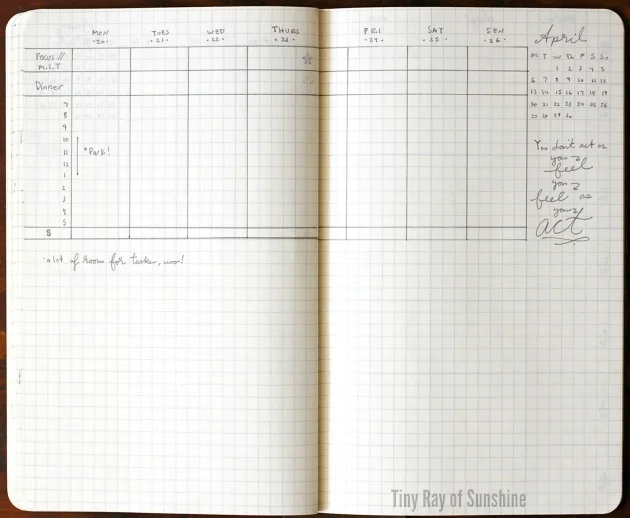 MON TUES WED THURS FRI SAT SUN
·20· ·21· ·22· ·24· ·25· ·26·
April
Focus //
M.I.T
Dinner
7
8
9
10
11
12
1
2
3
4
5
$
*Park!
M T W Th F S Su
1 2 3 4 5
6 7 8 9 10 11 12
13 14 15 16 17 18 19
20 21 22 23 24 25 26
27 28 29 30
You don't act as
you
feel
you
feel as
you
act
·a lot of room for tasks, woo!
Tiny Ray of Sunshine